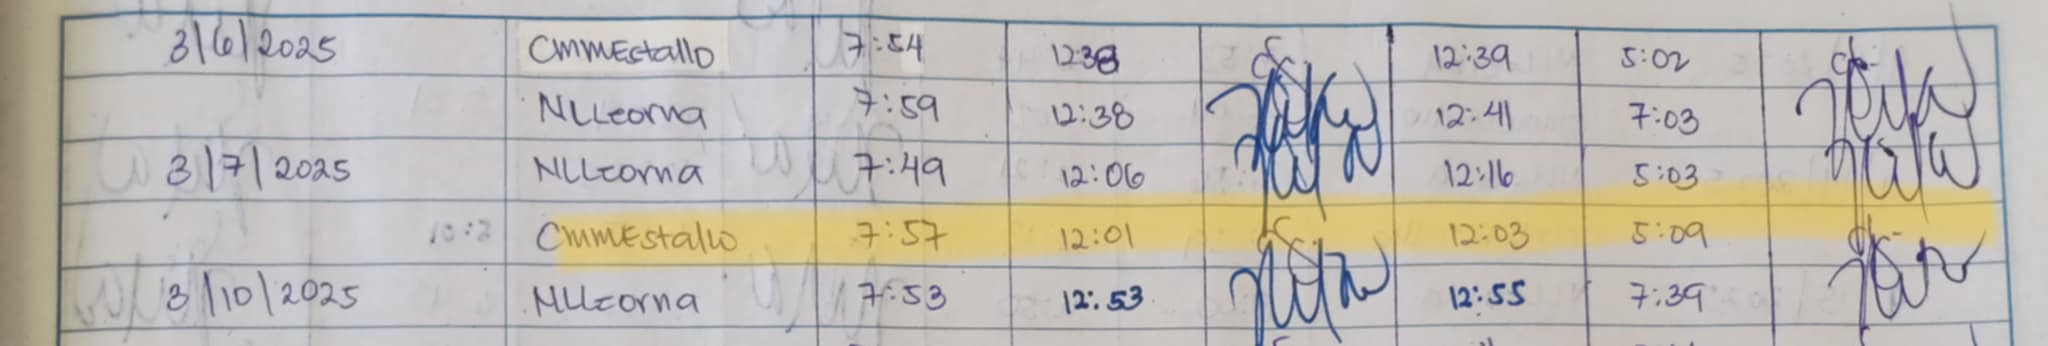 3/6/2025 CMMEstallo 7:54 12:38 12:39 5:02
NLLeorna 7:59 12:38 12:41 7:03
3/7/2025 NLLeorna 7:49 12:06 12:16 5:03
CMMEstallo 7:57 12:01 12:03 5:09
3/10/2025 NLLeorna 7:53 12:53 12:55 7:39